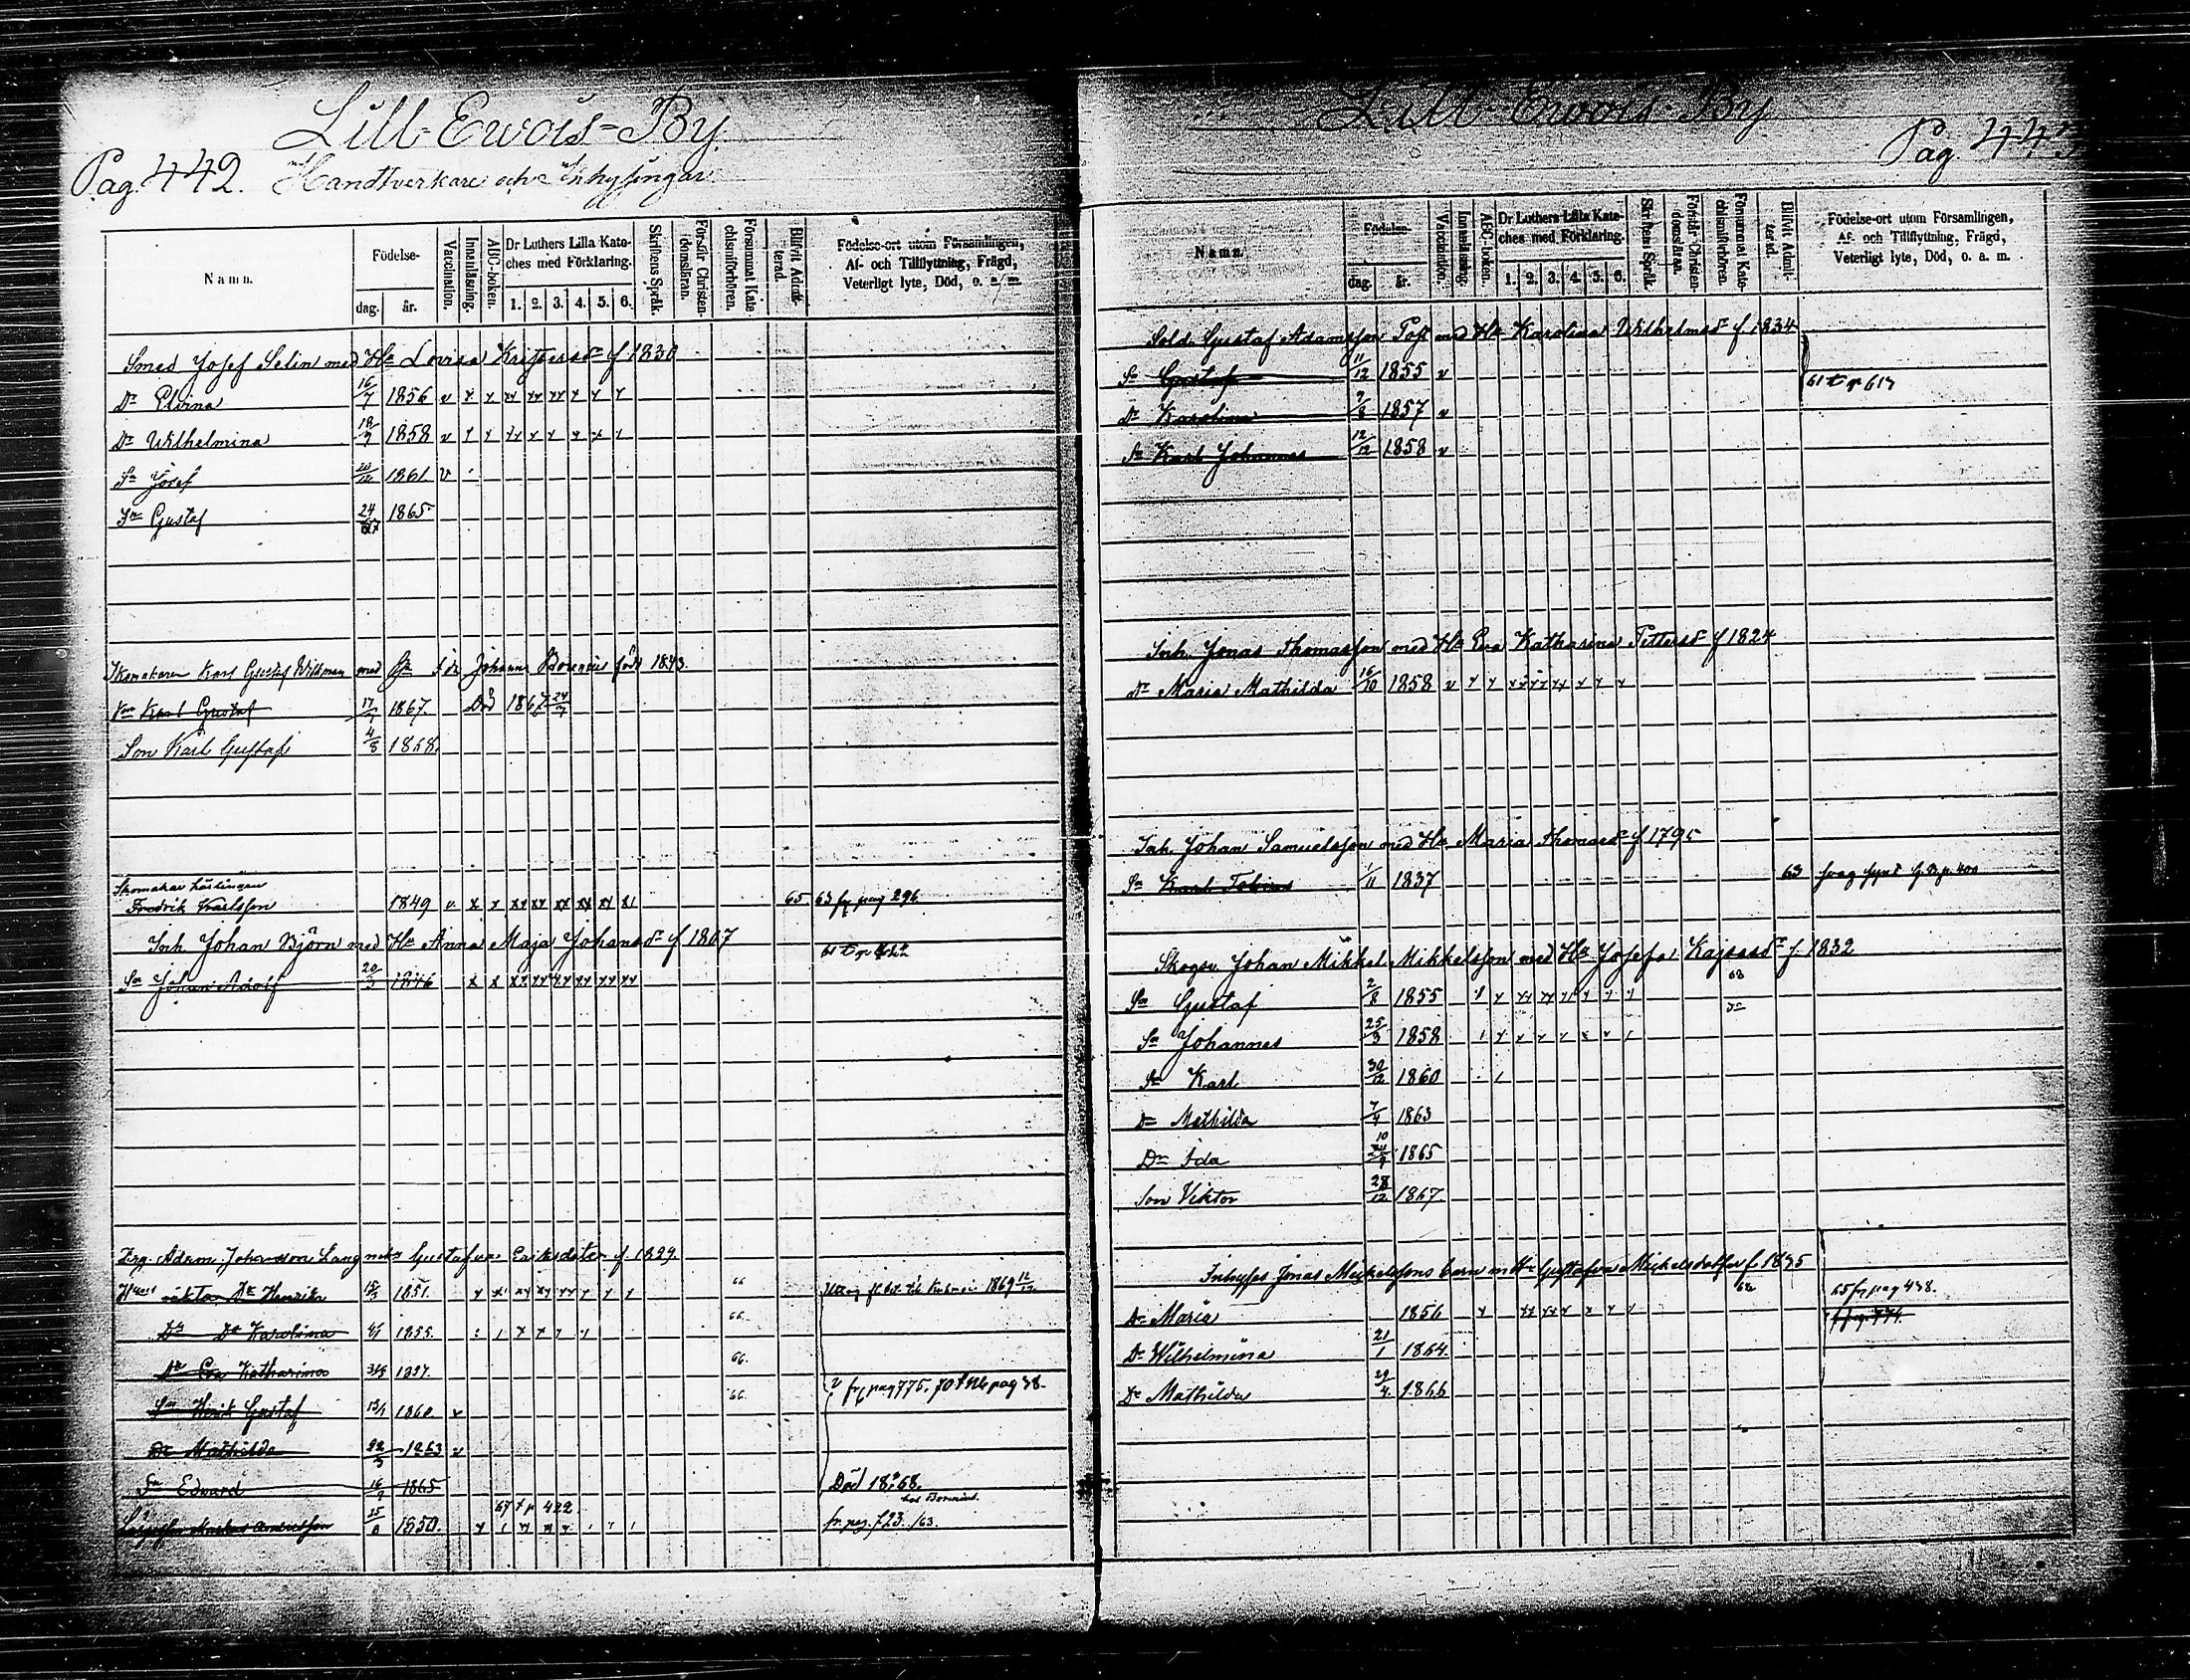 Lill-Ewois-By.
Pag. 442. Handtverkare och Inhysingar
Namn.
Födelse-
dag. år.
Vaccination.
Innanläsning.
ABC-boken.
Dr Luthers Lilla Kate-
ches med Förklaring.
1. 2. 3. 4. 5. 6.
Skriftens Språk.
Förstår Christen-
domsläran.
Försummat Kate-
chismiförhören.
Blifvit Admit-
terad.
Födelse-ort utom Församlingen,
Af- och Tillflyttning, Frägd,
Veterligt lyte, Död, o. a. m.
Smed Josef Selin med Hu Lovisa f 1830
Dr Elvina 16/7 1856 v
Dr Wilhelmina 18/9 1858 v
Sn Josef 1861 v
Sn Gustaf 24 1865
Skomakaren Karl Gustaf Wikman med Johanna född 1843.
Karl Gustaf 17/7 1867. Död 1867 24/7
Son Karl Gustaf 4/8 1868.
Skomakar Lärlingen
Fredrik Karlsson 1849 v 65 63 fr pag 296
Inh. Johan Björn med Hu Anna Maja Johansdr f 1807
Sn Johan Adolf 20/3 1846
Adam Johansson Lang Gustafva Eriksdoter f. 1829.
Dr Henrika 1851. 66 1869
Dr Karolina 1855. 66.
Dr Eva Katharina 1857. 66.
Sn Henrik Gustaf 1860 v 66. fr pag 775. 70 pag 38.
Dr Mathilda 22/3 1863 v
Sn Edvard 16/9 1865 Död 1868.
67 t p 422
25/8 1850. fr. pag. 723. /63.
Lill-Ewois-By
Pag. 443
Namn.
Födelse-
dag. år.
Vaccination.
Innanläsning.
ABC-boken.
Dr Luthers Lilla Kate-
ches med Förklaring.
1. 2. 3. 4. 5. 6.
Skriftens Språk.
Förstår Christen-
domsläran.
Försummat Kate-
chismiförhören.
Blifvit Admit-
terad.
Födelse-ort utom Församlingen,
Af- och Tillflyttning, Frägd,
Veterligt lyte, Död, o. a. m.
Sold. Gustaf Adamsson Toft med Hu Karolina Wilhelmsdr f 1834
Sn Gustaf 11/12 1855 v 61 t p 617
Dr Karolina 1857 v
Sn Karl Johannes 12/12 1858 v
Inh. Jonas Thomasson med Hu Eva Katharina Pettersdr f 1824
Dr Maria Mathilda 16/10 1858 v
Inh. Johan Samuelsson med Hu Maria Thomasdr f 1795
Sn Karl Tobias 1/11 1837 63 svag synt
Skogsv. Johan Mikkel Mikkelsson med Hu Josefa Kajsasdr f. 1832
Sn Gustaf 2/8 1855 68
Sn Johannes 25/3 1858
Sn Karl 30/12 1860
Dr Mathilda 7/4 1863
Dr Ida 1865
Son Viktor 28/12 1867
Inhyses Jonas Mickelssons barn m Hu Gustafva Mickelsdotter f. 1835
Dr Maria 1856 65 fr pag 438.
Dr Wilhelmina 21/1 1864.
Dr Mathilda 29/4 1866